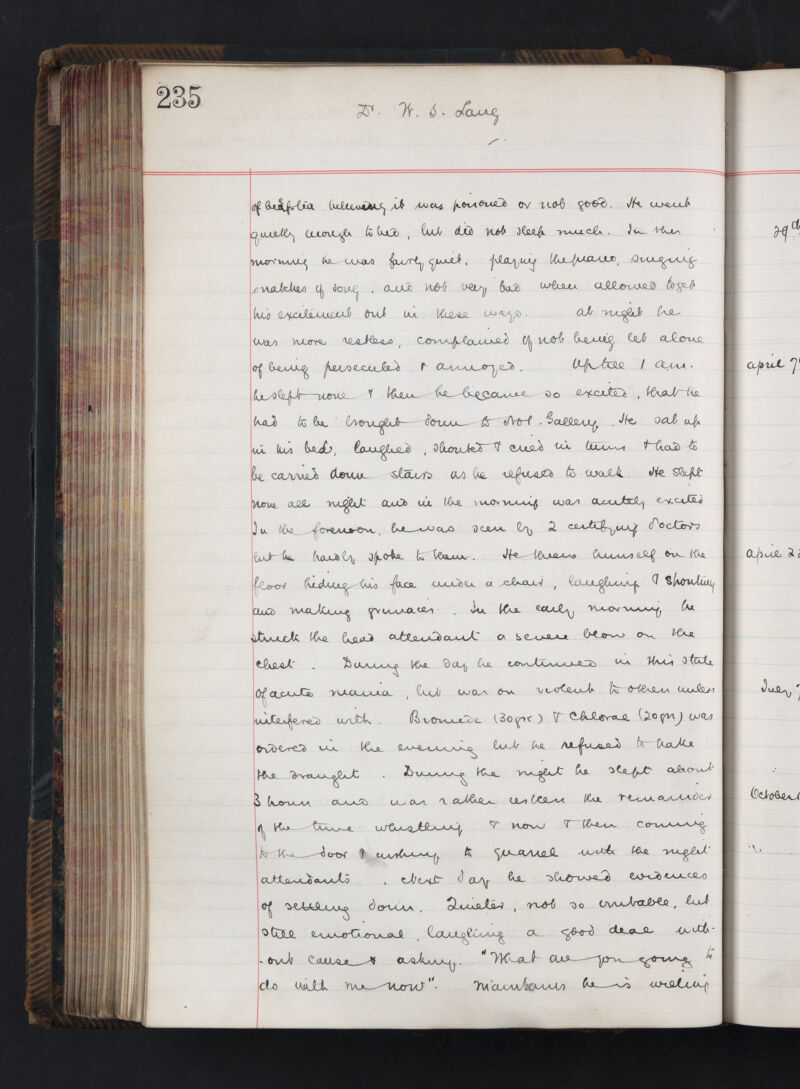 235
Dr. W. S. Lang
of believing it was poisoned or not good. He went
quietly enough to bed, but did not sleep much. In the
morning he was fairly quiet, playing the piano, singing
snatches of song, and not very bad when allowed to get
his excitement out in these ways. At night he
was more restless, complained of not being let alone
of being persecuted & annoyed. Up till 1 a.m.
he slept none & then he became so excited, that he
had to be brought down to No 1. Gallery. He sat up
in his bed, laughed, shouted & cried in turns & had to
be carried down stairs as he refused to walk. He slept
none all night and in the morning was acutely excited
In the forenoon, he was seen by 2 certifying doctors
but he hardly spoke to them. He threw himself on the
floor hiding his face under a chair, laughing & shouting
and making grimaces. In the early morning he
struck the head attendant a severe blow on the
chest. During the day he continued in this state
of acute mania, but was violent to others unless
interfered with. Bromide (30grs) & Chloral (20grs) was
ordered in the evening but he refused to take
the draught. During the night he slept about
3 hours and was rather restless the remainder
of the time whistling & now & then coming
to the door & wishing to quarrel with the night
attendants. Next day he showed evidences
of settling down. Quieter, not so irritable, but
still emotional, laughing a good deal with-
-out cause & asking. "What are you going to
do with me now". Maintains he is willing
29th
April 7
April 2
July
October